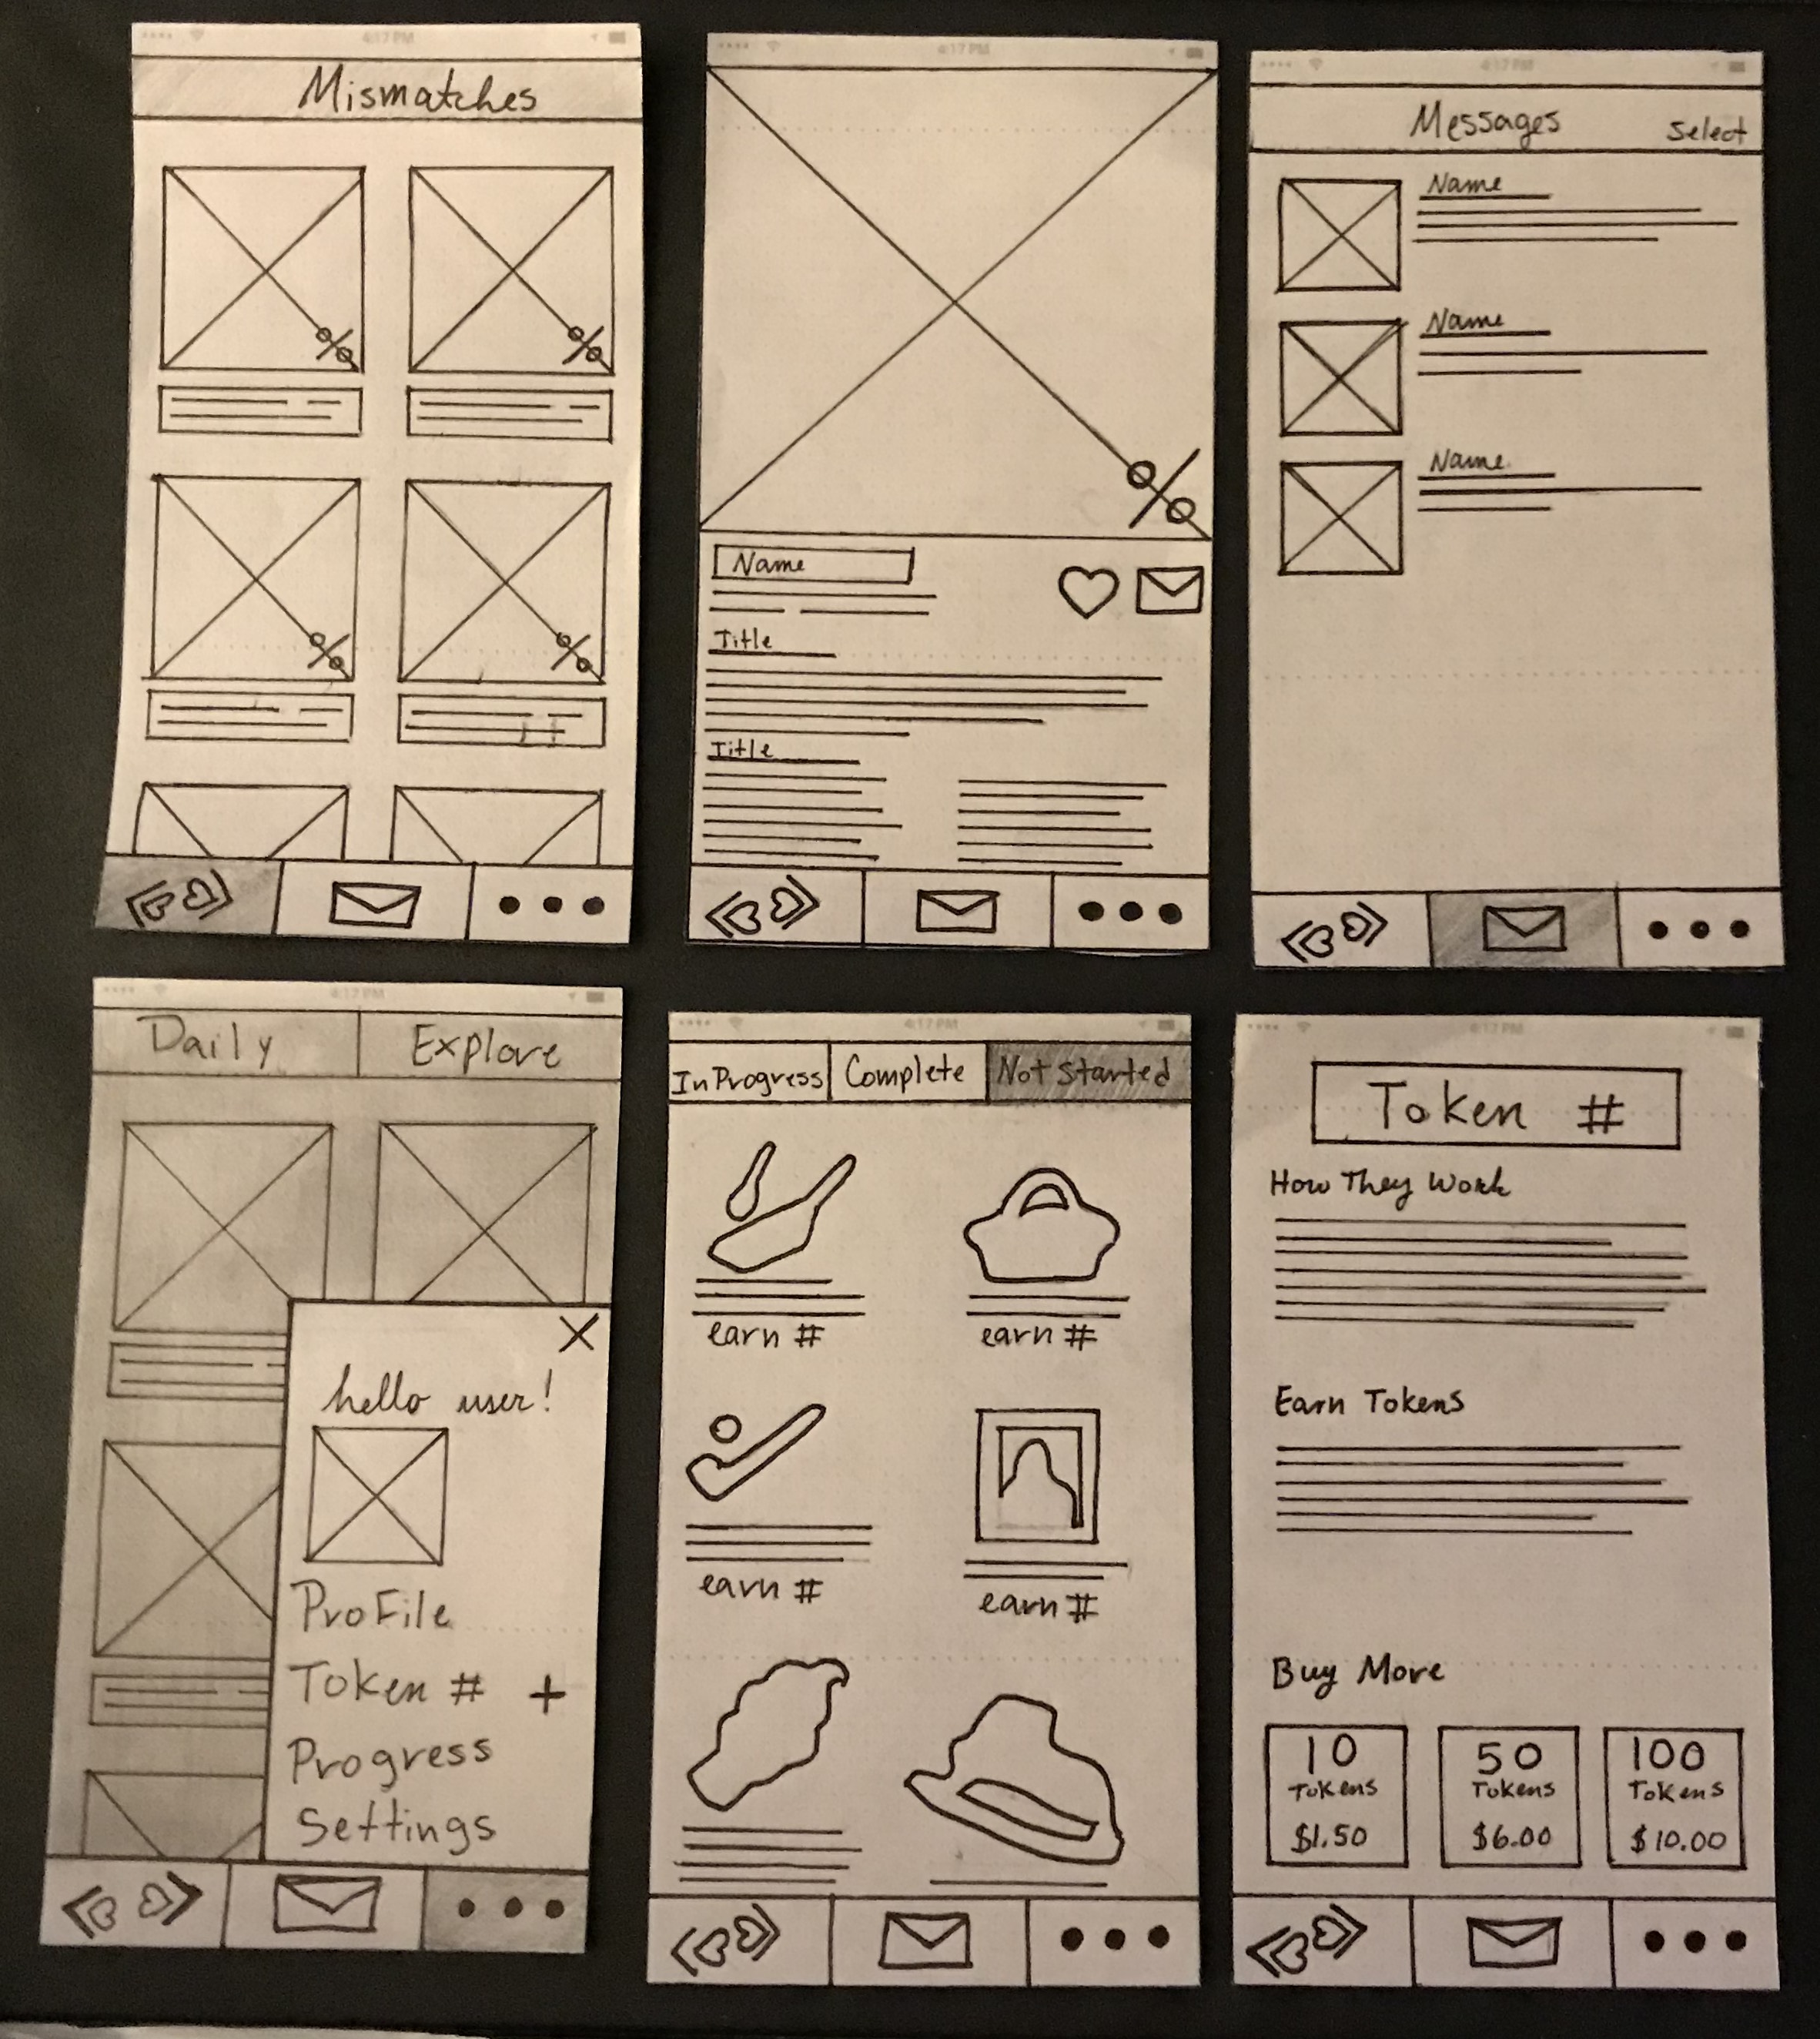 4:17 PM
Mismatches
%
%
%
%
4:17 PM
%
Name
Title
Title
4:17 PM
Messages Select
Name
Name
Name
4:17 PM
Daily Explore
X
hello user!
Profile
Token # +
Progress
Settings
4:17 PM
In Progress Complete Not Started
earn # earn #
earn # earn #
4:17 PM
Token #
How They Work
Earn Tokens
Buy More
10 Tokens $1.50
50 Tokens $6.00
100 Tokens $10.00